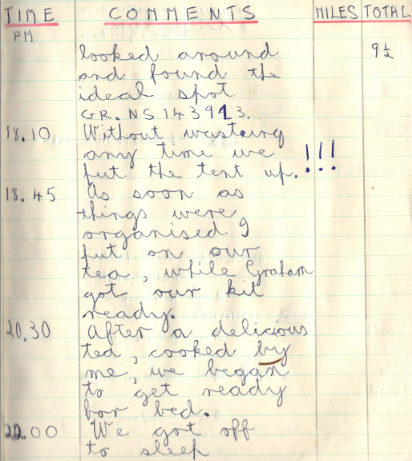 TIME COMMENTS MILES TOTAL
PM
looked around 9½
and found the
ideal spot
GR. NS 143923.
18.10 Without wasting
any time we
put the tent up.!!!
18.45 As soon as
things were
organised I
put on our
tea, while Graham
got our kit
ready.
20.30 After a delicious
tea, cooked by
me, we began
to get ready
for bed.
22.00 We got off
to sleep